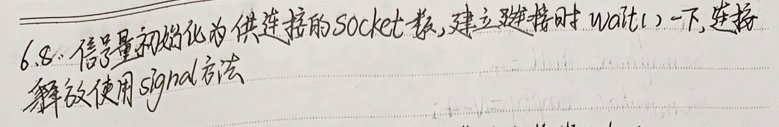 6.8. 信号量初始化为供连接的socket数,建立连接时 wait()一下,连接
释放使用signal方法